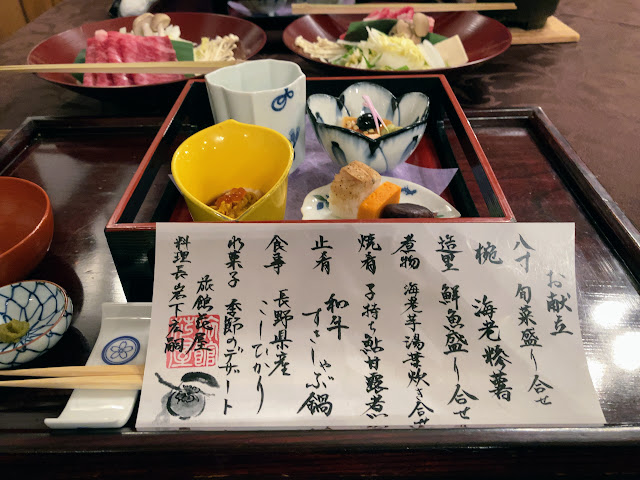 お献立
八寸 旬菜盛り合せ
椀 海老真薯
造里 鮮魚盛り合せ
煮物 海老芋湯葉炊き合せ
焼肴 子持ち鮎甘露煮
止肴 和牛すきしゃぶ鍋
食事 長野県産こしひかり
水菓子 季節のデザート
旅館
料理長 岩下